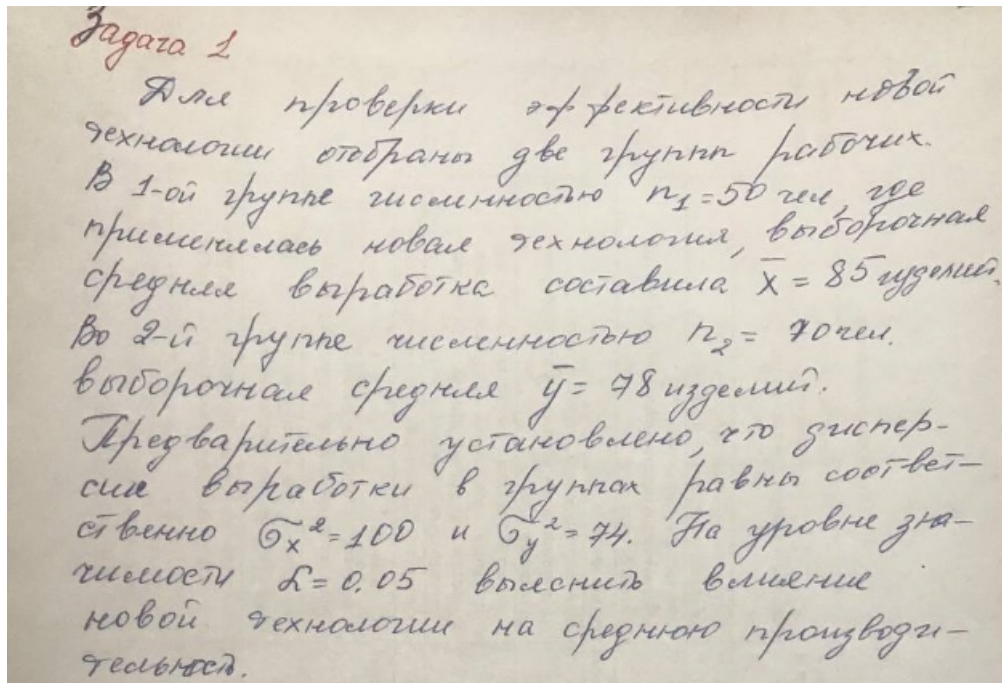 Задача 1
Для проверки эффективности новой
технологии отобраны две групп рабочих.
В 1-ой группе численностью n₁=50 чел, где
применялась новая технология, выборочная
средняя выработка составила x̄ = 85 изделий.
Во 2-й группе численностью n₂ = 70 чел.
выборочная средняя ȳ = 78 изделий.
Предварительно установлено, что диспер-
сии выработки в группах равны соответ-
ственно σₓ²=100 и σᵧ²=74. На уровне зна-
чимости α=0.05 выяснить влияние
новой технологии на среднюю производи-
тельность.